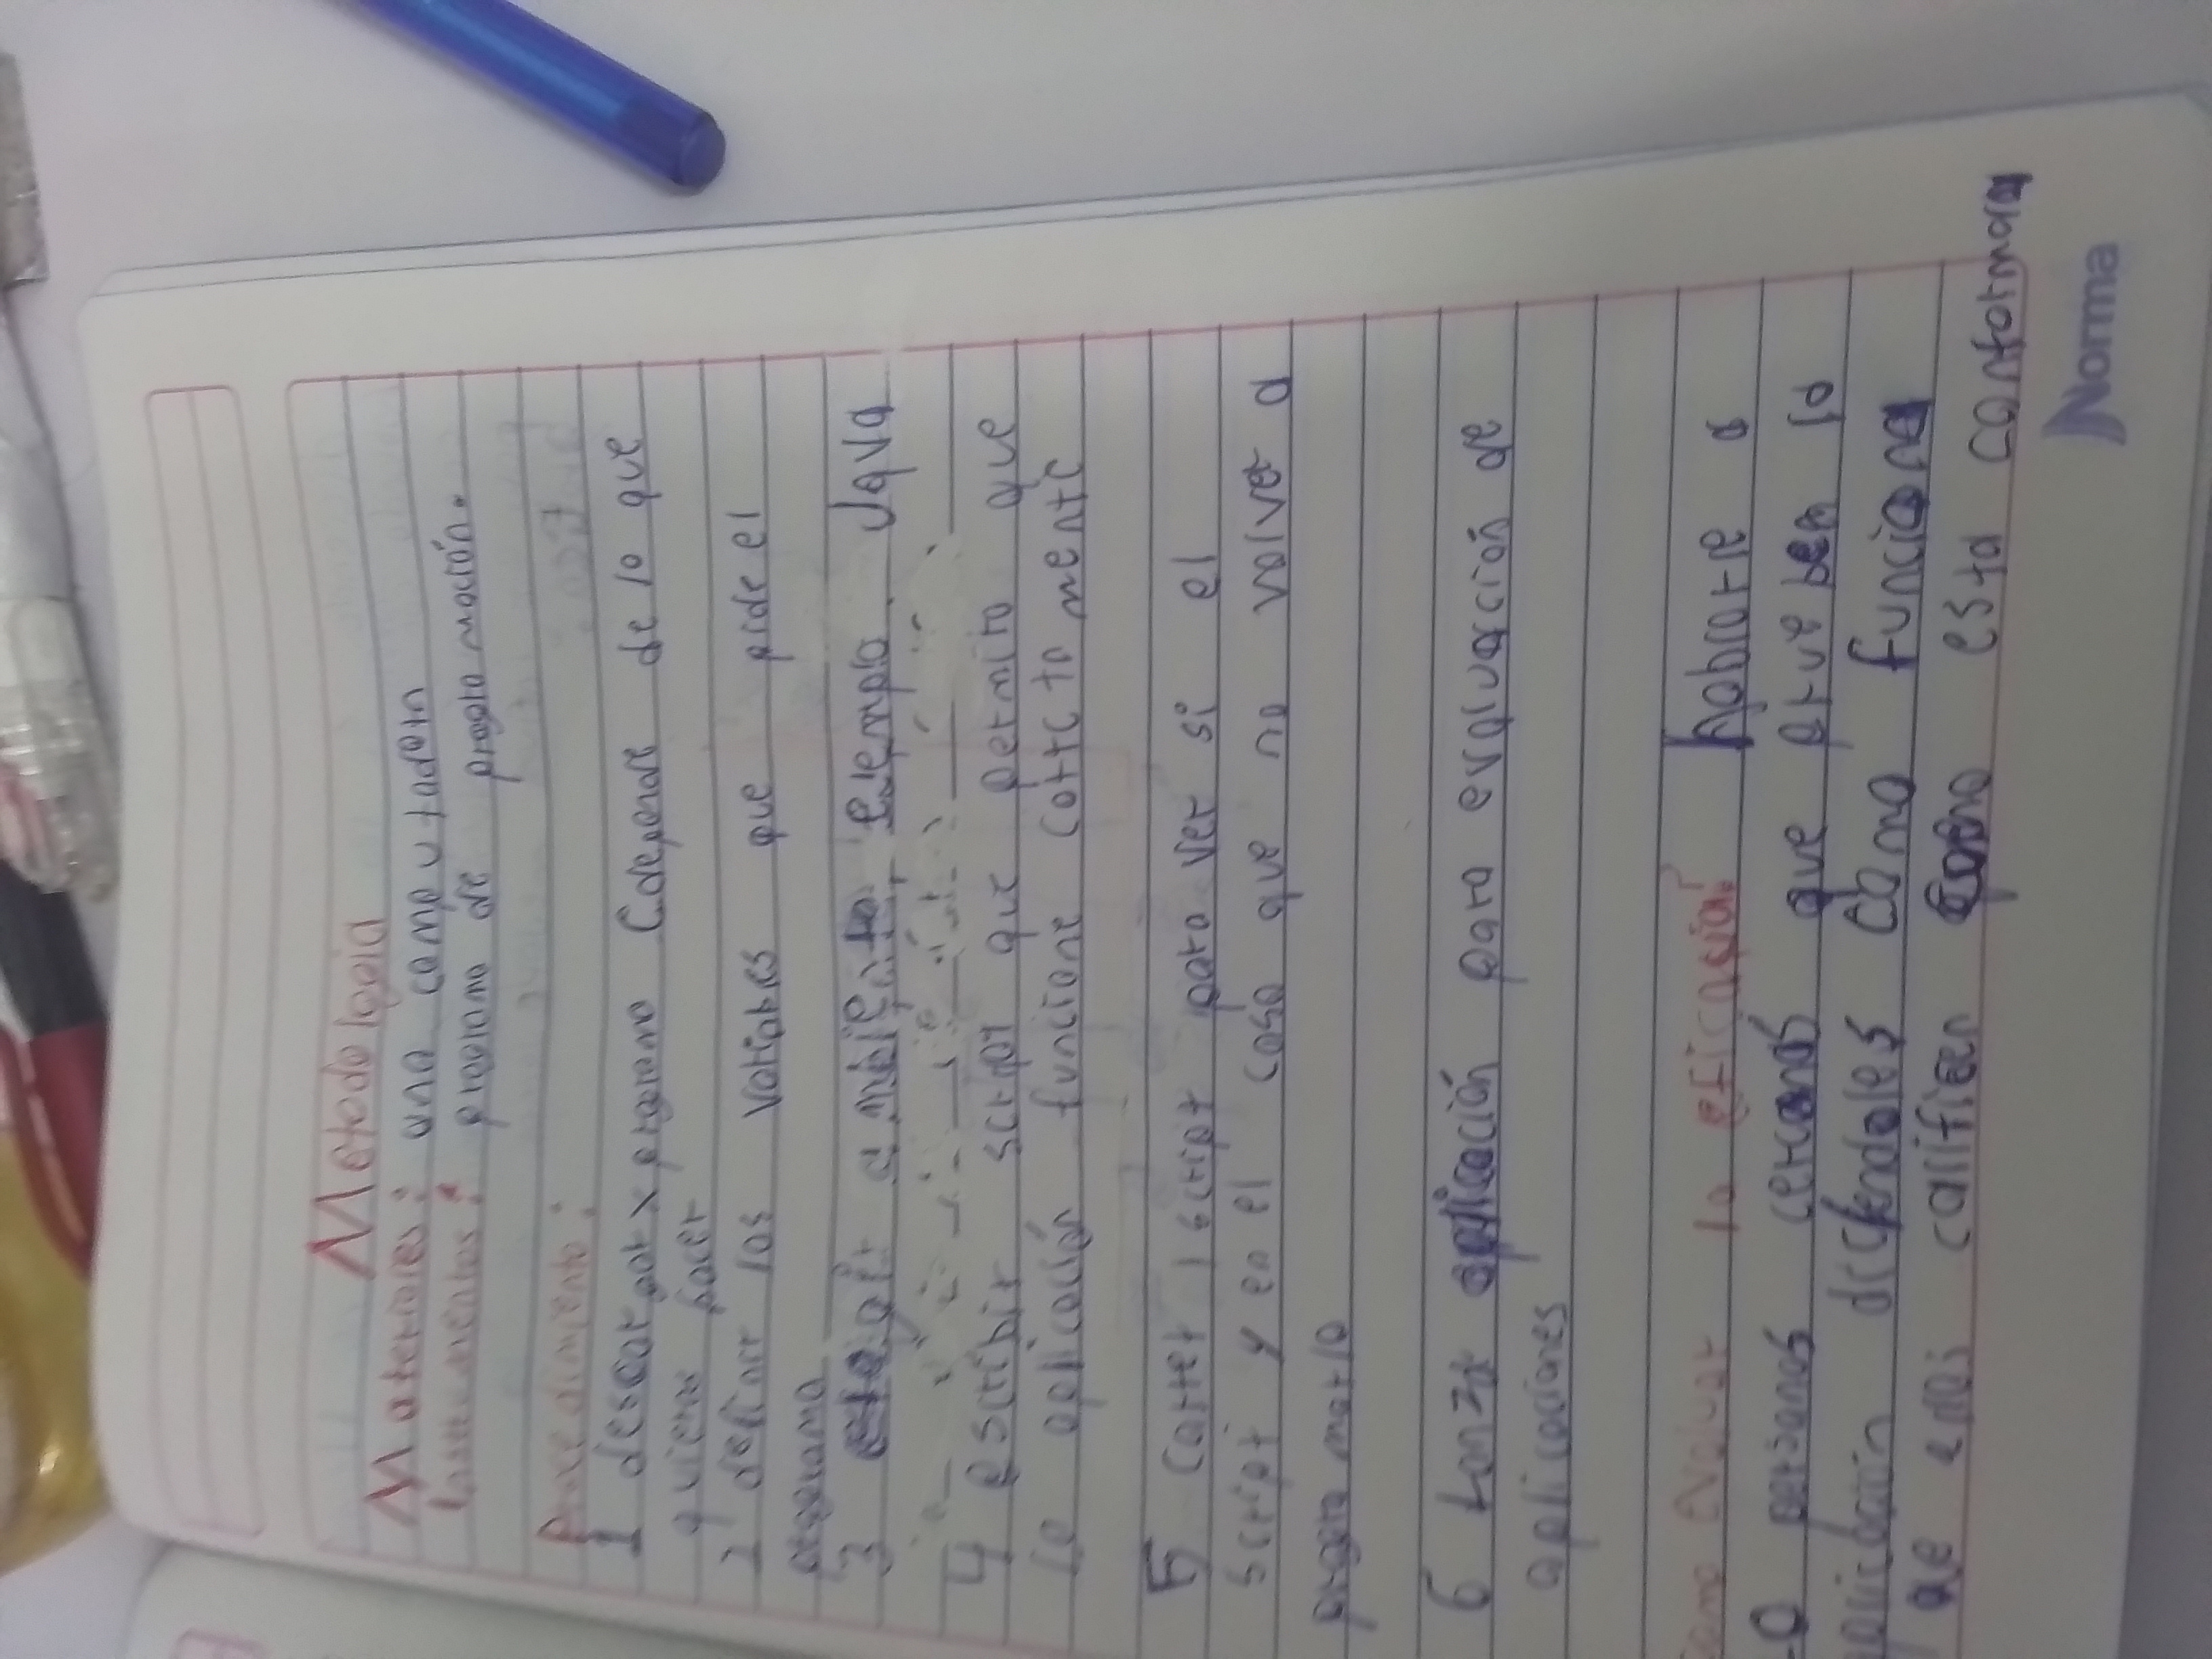 Metodologia
Materiales: una computadora
Instrumentos: programa de programación.
Procedimiento:
1 descargar x programa (depende de lo que
quieras hacer
2 definir las variables que pide el
programa
3 ejemplo Java
4 escribir script que permita que
la aplicación funcione
5 correr script para ver si el
script y en el caso que no volver a
programarlo
6 aplicación para evaluación de
aplicaciones
como evaluar la eficasia?
personas cercanas que prueben la
aplicación como funciona
califiquen esta conforma
Norma